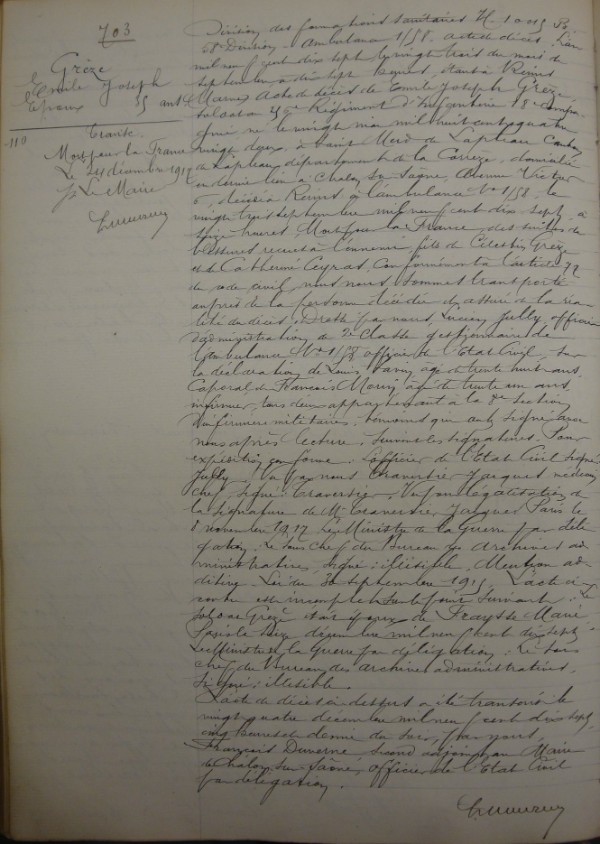 703
Grèze
Emile Joseph
Epoux
ans
110
Transc.
Mort pour la France
Le 24 décembre 1917
Le Maire
Division des formations sanitaires
58e Division. Ambulance 1/58. Acte de décès. L'an
mil neuf cent dix sept le vingt trois du mois de
septembre à dix sept heures, étant à Reims
Marne. Acte de décès de Emile Joseph Grèze
soldat au Régiment d'Infanterie 18e compa
gnie né le vingt mai mil huit cent quatre
vingt deux à Saint Merd de Lapleau Canton
de Lapleau département de la Corrèze, domicilié
en dernier lieu à Chalon sur Saône, Avenue Victor
décédé à Reims à l'ambulance No 1/58 le
vingt trois septembre mil neuf cent dix sept à
seize heures Mort pour la France, des suites de
blessures reçues à l'ennemi, fils de Célestin Grèze
et de Catherine Ceyrat. Conformément à l'article 77
du code civil, nous nous sommes transporté
auprès de la personne décédée et assuré de la réa
lité du décès. Dressé par nous, Lucien Jully officier
d'administration de 2e Classe gestionnaire de
l'ambulance No 1/58 officier de l'Etat Civil, sur
la déclaration de Louis âgé de trente huit ans,
Caporal, et François âgé de trente un ans,
infirmier, tous deux appartenant à la section
d'infirmiers militaires, témoins qui ont signé avec
nous après lecture. Suivent les signatures. Pour
expédition conforme: l'officier de l'Etat Civil signé:
Jully. Vu par nous Traversier Jacques médecin
chef, signé: Traversier. Vu pour légalisation de
la signature de Mr Traversier Jacques Paris le
8 novembre 1917 Le Ministre de la Guerre par délé
gation, le sous chef du Bureau des Archives ad
ministratives, signé: illisible. Mention ad
ditive. Loi du 30 septembre 1915. L'acte ci
contre est incomplet sur le point suivant: Le
soldat Grèze était époux de Fraysse Marie
Paris le seize décembre mil neuf cent dix sept
Le Ministre de la Guerre par délégation: Le sous
chef du Bureau des archives administratives,
Signé: illisible.
L'acte de décès ci-dessus a été transcrit le
vingt quatre décembre mil neuf cent dix sept,
cinq heures et demie du soir, par nous,
François Duverne second adjoint au Maire
de Chalon-sur-Saône, officier de l'Etat Civil
par délégation.